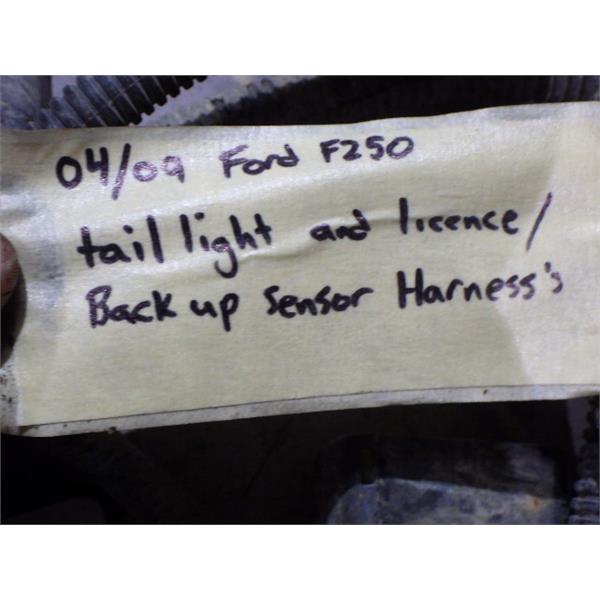 04/09 Ford F250
tail light and licence/
Back up Sensor Harness's